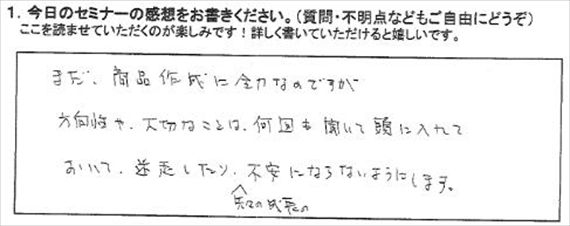 1. 今日のセミナーの感想をお書きください。(質問・不明点などもご自由にどうぞ)
ここを読ませていただくのが楽しみです!詳しく書いていただけると嬉しいです。
まだ、商品作成に全力なのですが
方向性や、大切なことは、何回も聞いて頭に入れて
おいて、迷走したり、不安にならないようにします。
先々の成長の